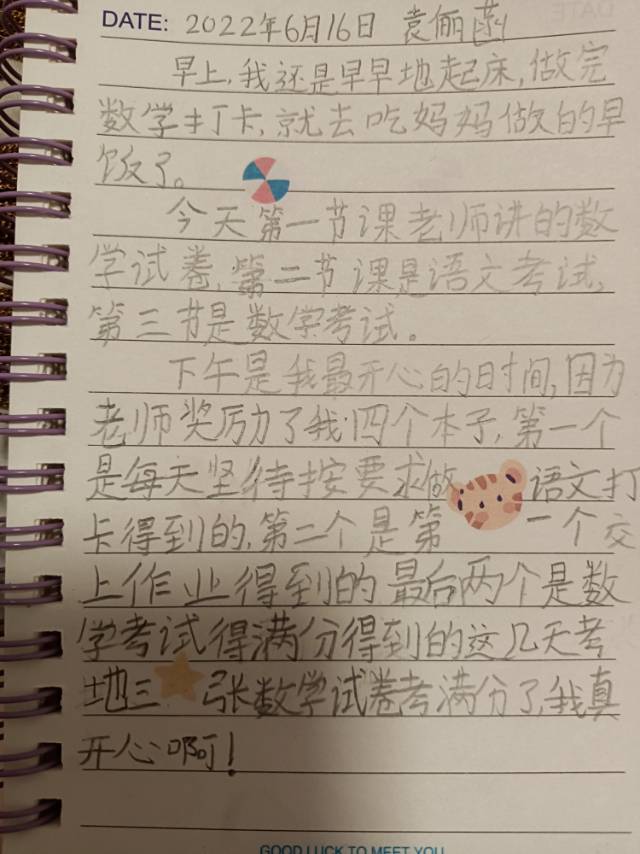 DATE: 2022年6月16日 袁俪菡
早上,我还是早早地起床,做完
数学打卡,就去吃妈妈做的早
饭了。
今天第一节课老师讲的数
学试卷,第二节课是语文考试,
第三节是数学考试。
下午是我最开心的时间,因为
老师奖厉力了我四个本子,第一个
是每天坚待按要求做语文打
卡得到的,第二个是第一个交
上作业得到的最后两个是数
学考试得满分得到的这几天考
地三张数学试卷考满分了,我真
开心啊!
GOOD LUCK TO MEET YOU